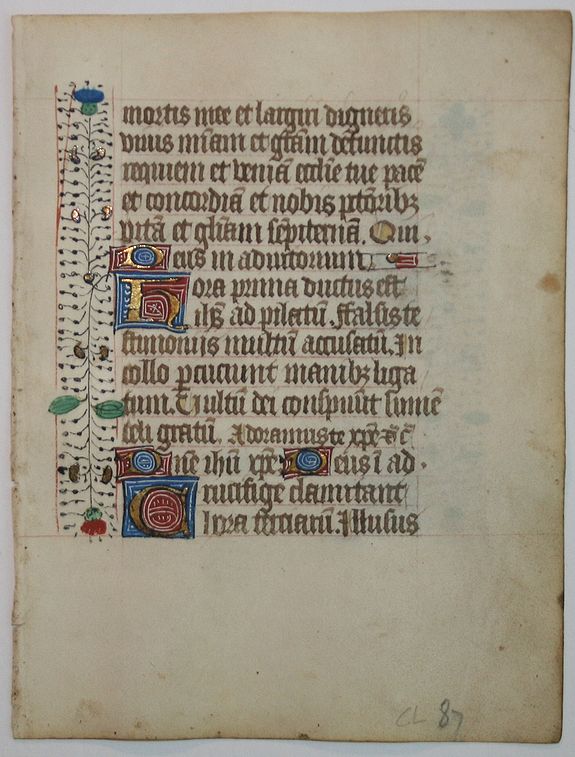 mortis mee et largiri digneris
viuis mīam et grām defunctis
requiem et veniā ecclīe tue pacē
et concordiā et nobis pctōribz
vitā et glīam sēpiternā. Qui.
Deus in adiutorium
Hora prima ductus est
ihs ad pilatū. Falsis te
stimonijs multū accusatū. In
collo ꝑcuciunt manibz liga
tum. Vultū dei conspuūt lumē
celi gratū. Adoramus te xpē
Dnē ihū xpē Deus ī ad.
Crucifige clamitant
hora terciarū. Illusus
CL 87